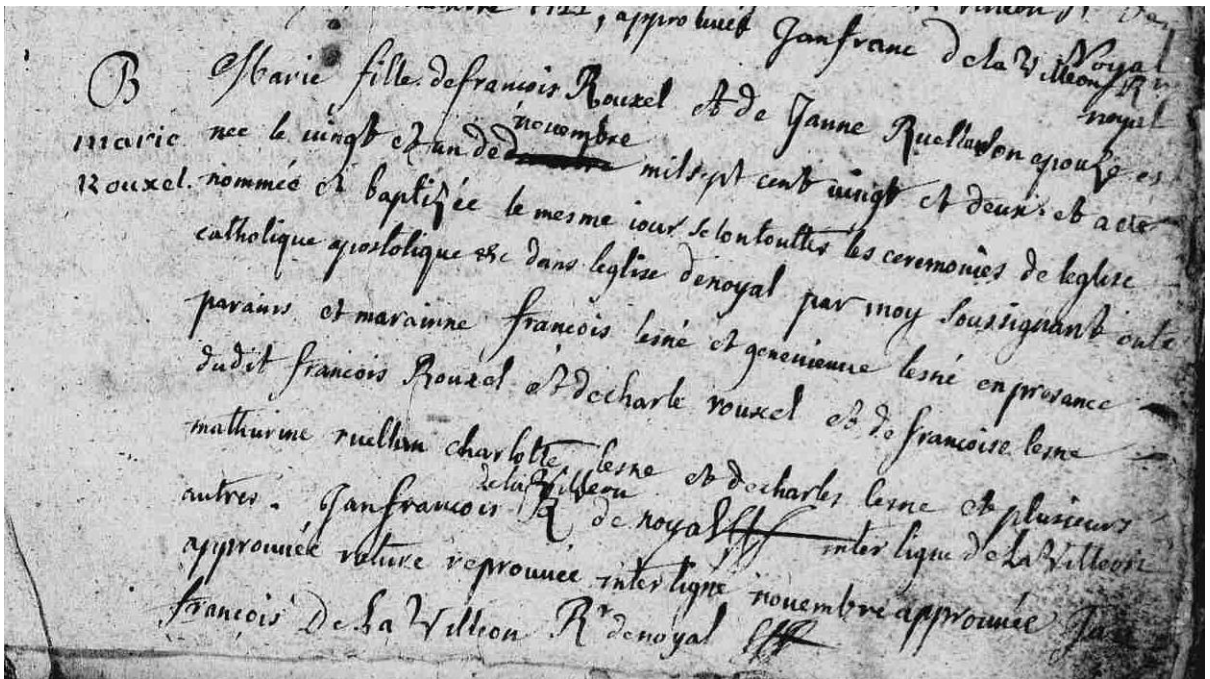 1722, approuvée Janfranc de la Villeon Rr de
Noyal
B
marie
Rouxel.
Marie fille de francois Rouxel et de Janne Ruellan son epouze
nee le vingt et un de novembre mil sept cent vingt et deux et a eté
nommée et baptizée le mesme iour selon touttes les ceremonies de leglise
catholique apostolique &c dans leglise denoyal par moy soussignant onte
parains et marainne francois lesné et genevievve lesné en presance
dudit francois Rouxel et decharle rouxel et de francoise lesne
mathurine ruellan charlotte lesne et decharles lesne et plusieurs
autres. Janfrancois de la Villeon Rr de noyal interligne de La Villeon
approuvée rature reprouvée interligne novembre approuvée Jan
francois De La Villeon Rr denoyal